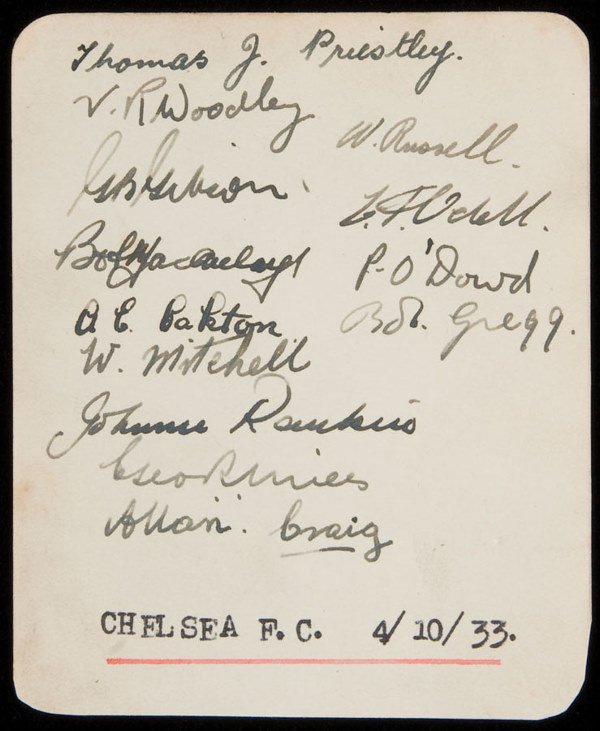 Thomas J. Priestley.
V. R Woodley
W. Russell.
G B Gibson
L. F. Odell.
Bob Macaulay
P. O'Dowd
A. C. Oakton
Bob. Gregg.
W. Mitchell
Johnnie Rankin
Geo R Mills
Allan. Craig
CHELSEA F.C. 4/10/33.